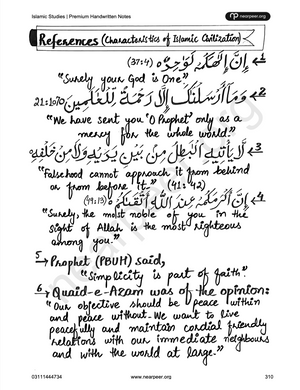 Islamic Studies | Premium Handwritten Notes
np nearpeer.org
References (Characteristics of Islamic Civilization)
(37:4) إِنَّ إِلَٰهَكُمْ لَوَاحِدٌ 1
"Surely your God is One"
21:107 وَمَا أَرْسَلْنَٰكَ إِلَّا رَحْمَةً لِّلْعَٰلَمِينَ 2
"We have sent you 'O Prophet' only as a
mercy for the whole world."
لَا يَأْتِيهِ الْبَٰطِلُ مِنْ بَيْنِ يَدَيْهِ وَلَا مِنْ خَلْفِهِ 3
"Falsehood cannot approach it from behind
or from before it." (41:42)
(49:13) إِنَّ أَكْرَمَكُمْ عِنْدَ اللَّهِ أَتْقَىٰكُمْ 4
"Surely, the most noble of you in the
sight of Allah is the most righteous
among you."
5 → Prophet (PBUH) said,
"Simplicity is part of faith."
6 → Quaid-e-Azam was of the opinion:
"Our objective should be peace within
and peace without. We want to live
peacefully and maintain cordial friendly
relations with our immediate neighbours
and with the world at large."
03111444734
www.nearpeer.org
310